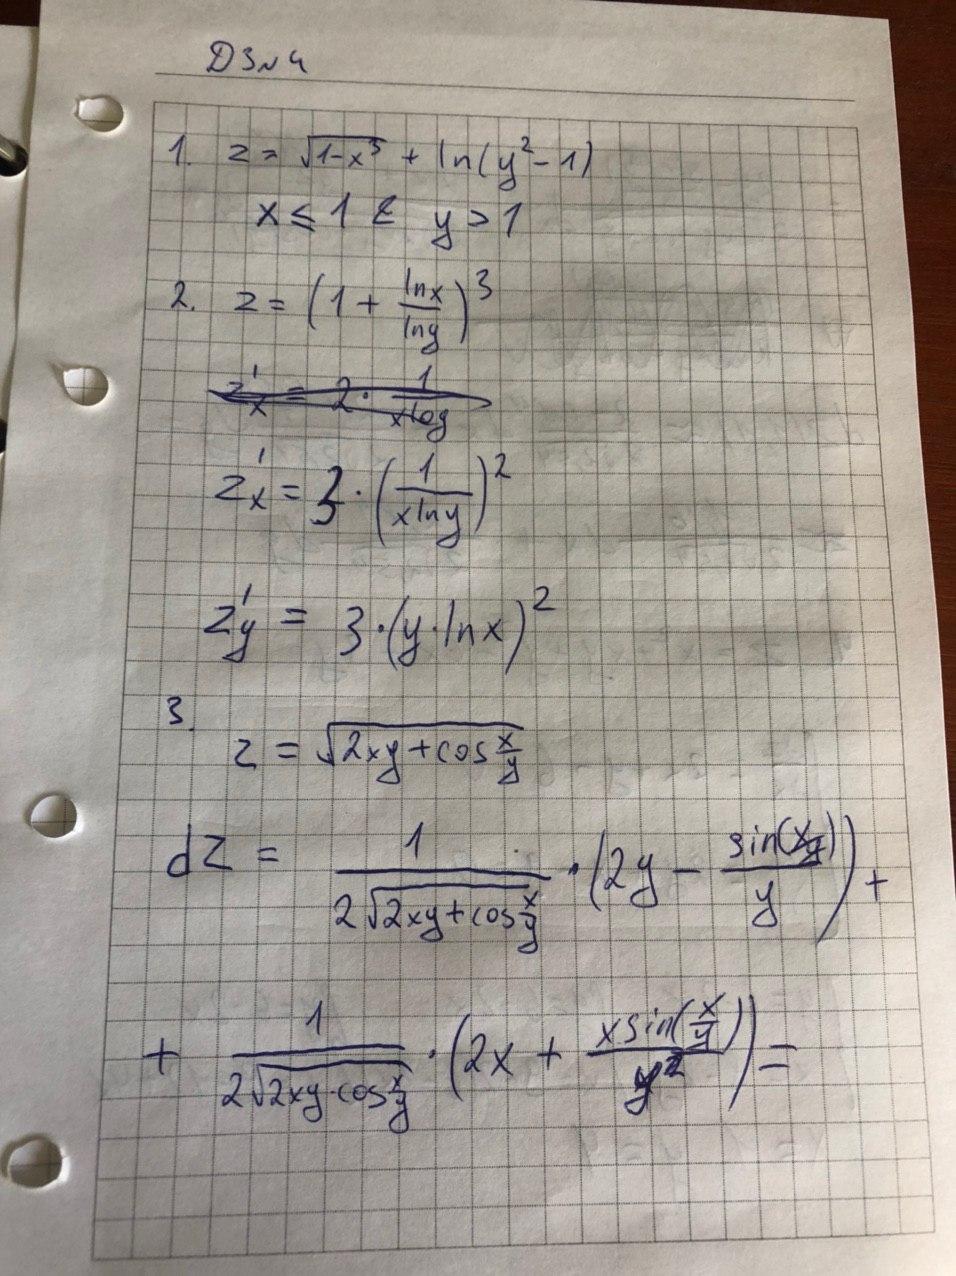 ДЗ№4
1. z = √(1-x³) + ln(y² - 1)
x ≤ 1 & y > 1
2. z = (1 + ln x / ln y)³
z'x = 3 · (1 / (x ln y))²
z'y = 3 · (y · ln x)²
3.
z = √(2xy + cos x/y)
dz = 1 / (2√(2xy + cos x/y)) · (2y - sin(x/y) / y) +
+ 1 / (2√(2xy · cos x/y)) · (2x + x sin(x/y) / y²) =